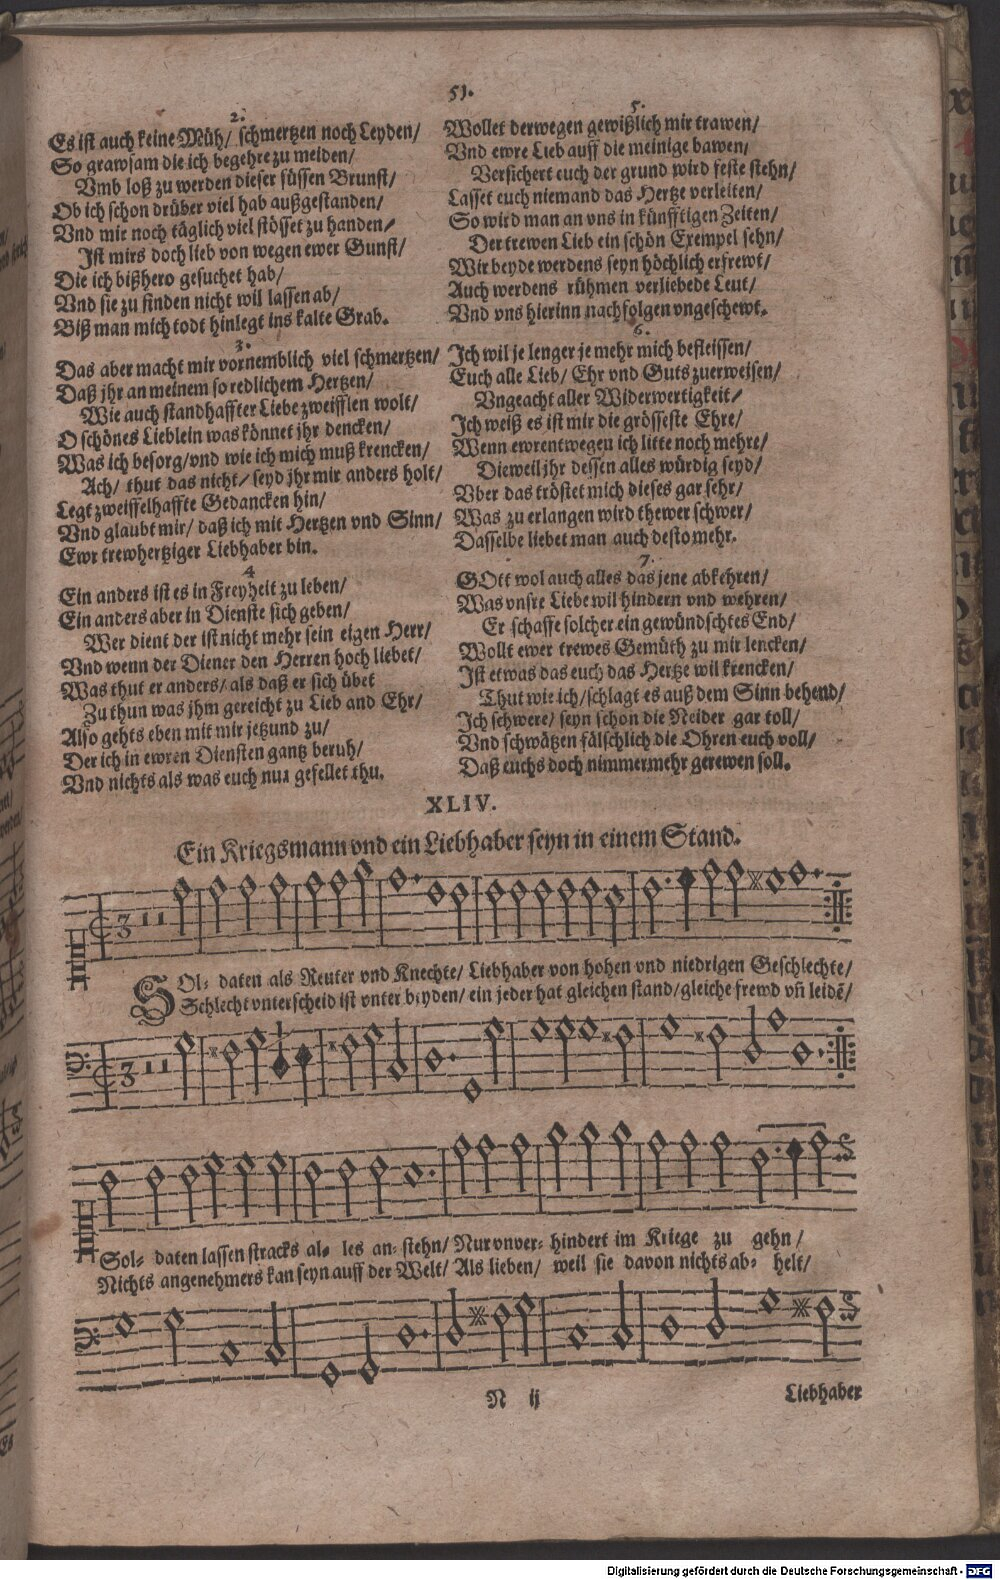 51.
2.
Es ist auch keine Müh/ schmertzen noch Leyden/
So grawsam die ich begehre zu meiden/
Vmb loß zu werden dieser süssen Brunst/
Ob ich schon drüber viel hab außgestanden/
Vnd mir noch täglich viel stösset zu handen/
Ist mirs doch lieb von wegen ewer Gunst/
Die ich bißhero gesuchet hab/
Vnd sie zu finden nicht wil lassen ab/
Biß man mich todt hinlegt ins kalte Grab.
3.
Das aber macht mir vornemblich viel schmertzen/
Daß jhr an meinem so redlichem Hertzen/
Wie auch standhaffter Liebe zweifflen wolt/
O schönes Lieblein was könnet jhr dencken/
Was ich besorg/ vnd wie ich mich muß krencken/
Ach/ thut das nicht/ seyd jhr mir anders holt/
Legt zweiffelhaffte Gedancken hin/
Vnd glaubt mir/ daß ich mit Hertzen vnd Sinn/
Ewr trewhertziger Liebhaber bin.
4
Ein anders ist es in Freyheit zu leben/
Ein anders aber in Dienste sich geben/
Wer dient der ist nicht mehr sein eigen Herr/
Vnd wenn der Diener den Herren hoch liebet/
Was thut er anders/ als daß er sich übet
Zu thun was jhm gereicht zu Lieb and Ehr/
Also gehts eben mit mir jetzund zu/
Der ich in ewren Diensten gantz beruh/
Vnd nichts als was euch nur gefellet thu.
5.
Wollet derwegen gewißlich mir trawen/
Vnd ewre Lieb auff die meinige bawen/
Versichert euch der grund wird feste stehn/
Lasset euch niemand das Hertze verleiten/
So wird man an vns in künfftigen Zeiten/
Der trewen Lieb ein schön Exempel sehn/
Wir beyde werdens seyn höchlich erfrewt/
Auch werdens rühmen verliebede Leut/
Vnd vns hierinn nachfolgen vngeschewt.
6.
Ich wil je lenger je mehr mich befleissen/
Euch alle Lieb/ Ehr vnd Guts zuerweisen/
Vngeacht aller Widerwertigkeit/
Ich weiß es ist mir die grösseste Ehre/
Wenn ewrentwegen ich litte noch mehre/
Dieweil jhr dessen alles würdig seyd/
Vber das tröstet mich dieses gar sehr/
Was zu erlangen wird thewer schwer/
Dasselbe liebet man auch desto mehr.
7.
GOtt wol auch alles das jene abkehren/
Was vnsre Liebe wil hindern vnd wehren/
Er schaffe solcher ein gewündschtes End/
Wollt ewer trewes Gemüth zu mir lencken/
Ist etwas das euch das Hertze wil krencken/
Thut wie ich/ schlagt es auß dem Sinn behend/
Ich schwere/ seyn schon die Neider gar toll/
Vnd schwätzen fälschlich die Ohren euch voll/
Daß euchs doch nimmermehr gerewen soll.
XLIV.
Ein Kriegsmann vnd ein Liebhaber seyn in einem Stand.
SOl- daten als Reuter vnd Knechte/ Liebhaber von hohen vnd niedrigen Geschlechte/
Schlecht vnterscheid ist vnter beyden/ ein jeder hat gleichen stand/ gleiche frewd vn̄ leidē/
Sol- daten lassen stracks al- les an- stehn/ Nur vnver- hindert im Kriege zu gehn/
Nichts angenehmers kan seyn auff der Welt/ Als lieben/ weil sie davon nichts ab- helt/
N ij
Liebhaber
Digitalisierung gefördert durch die Deutsche Forschungsgemeinschaft - DFG